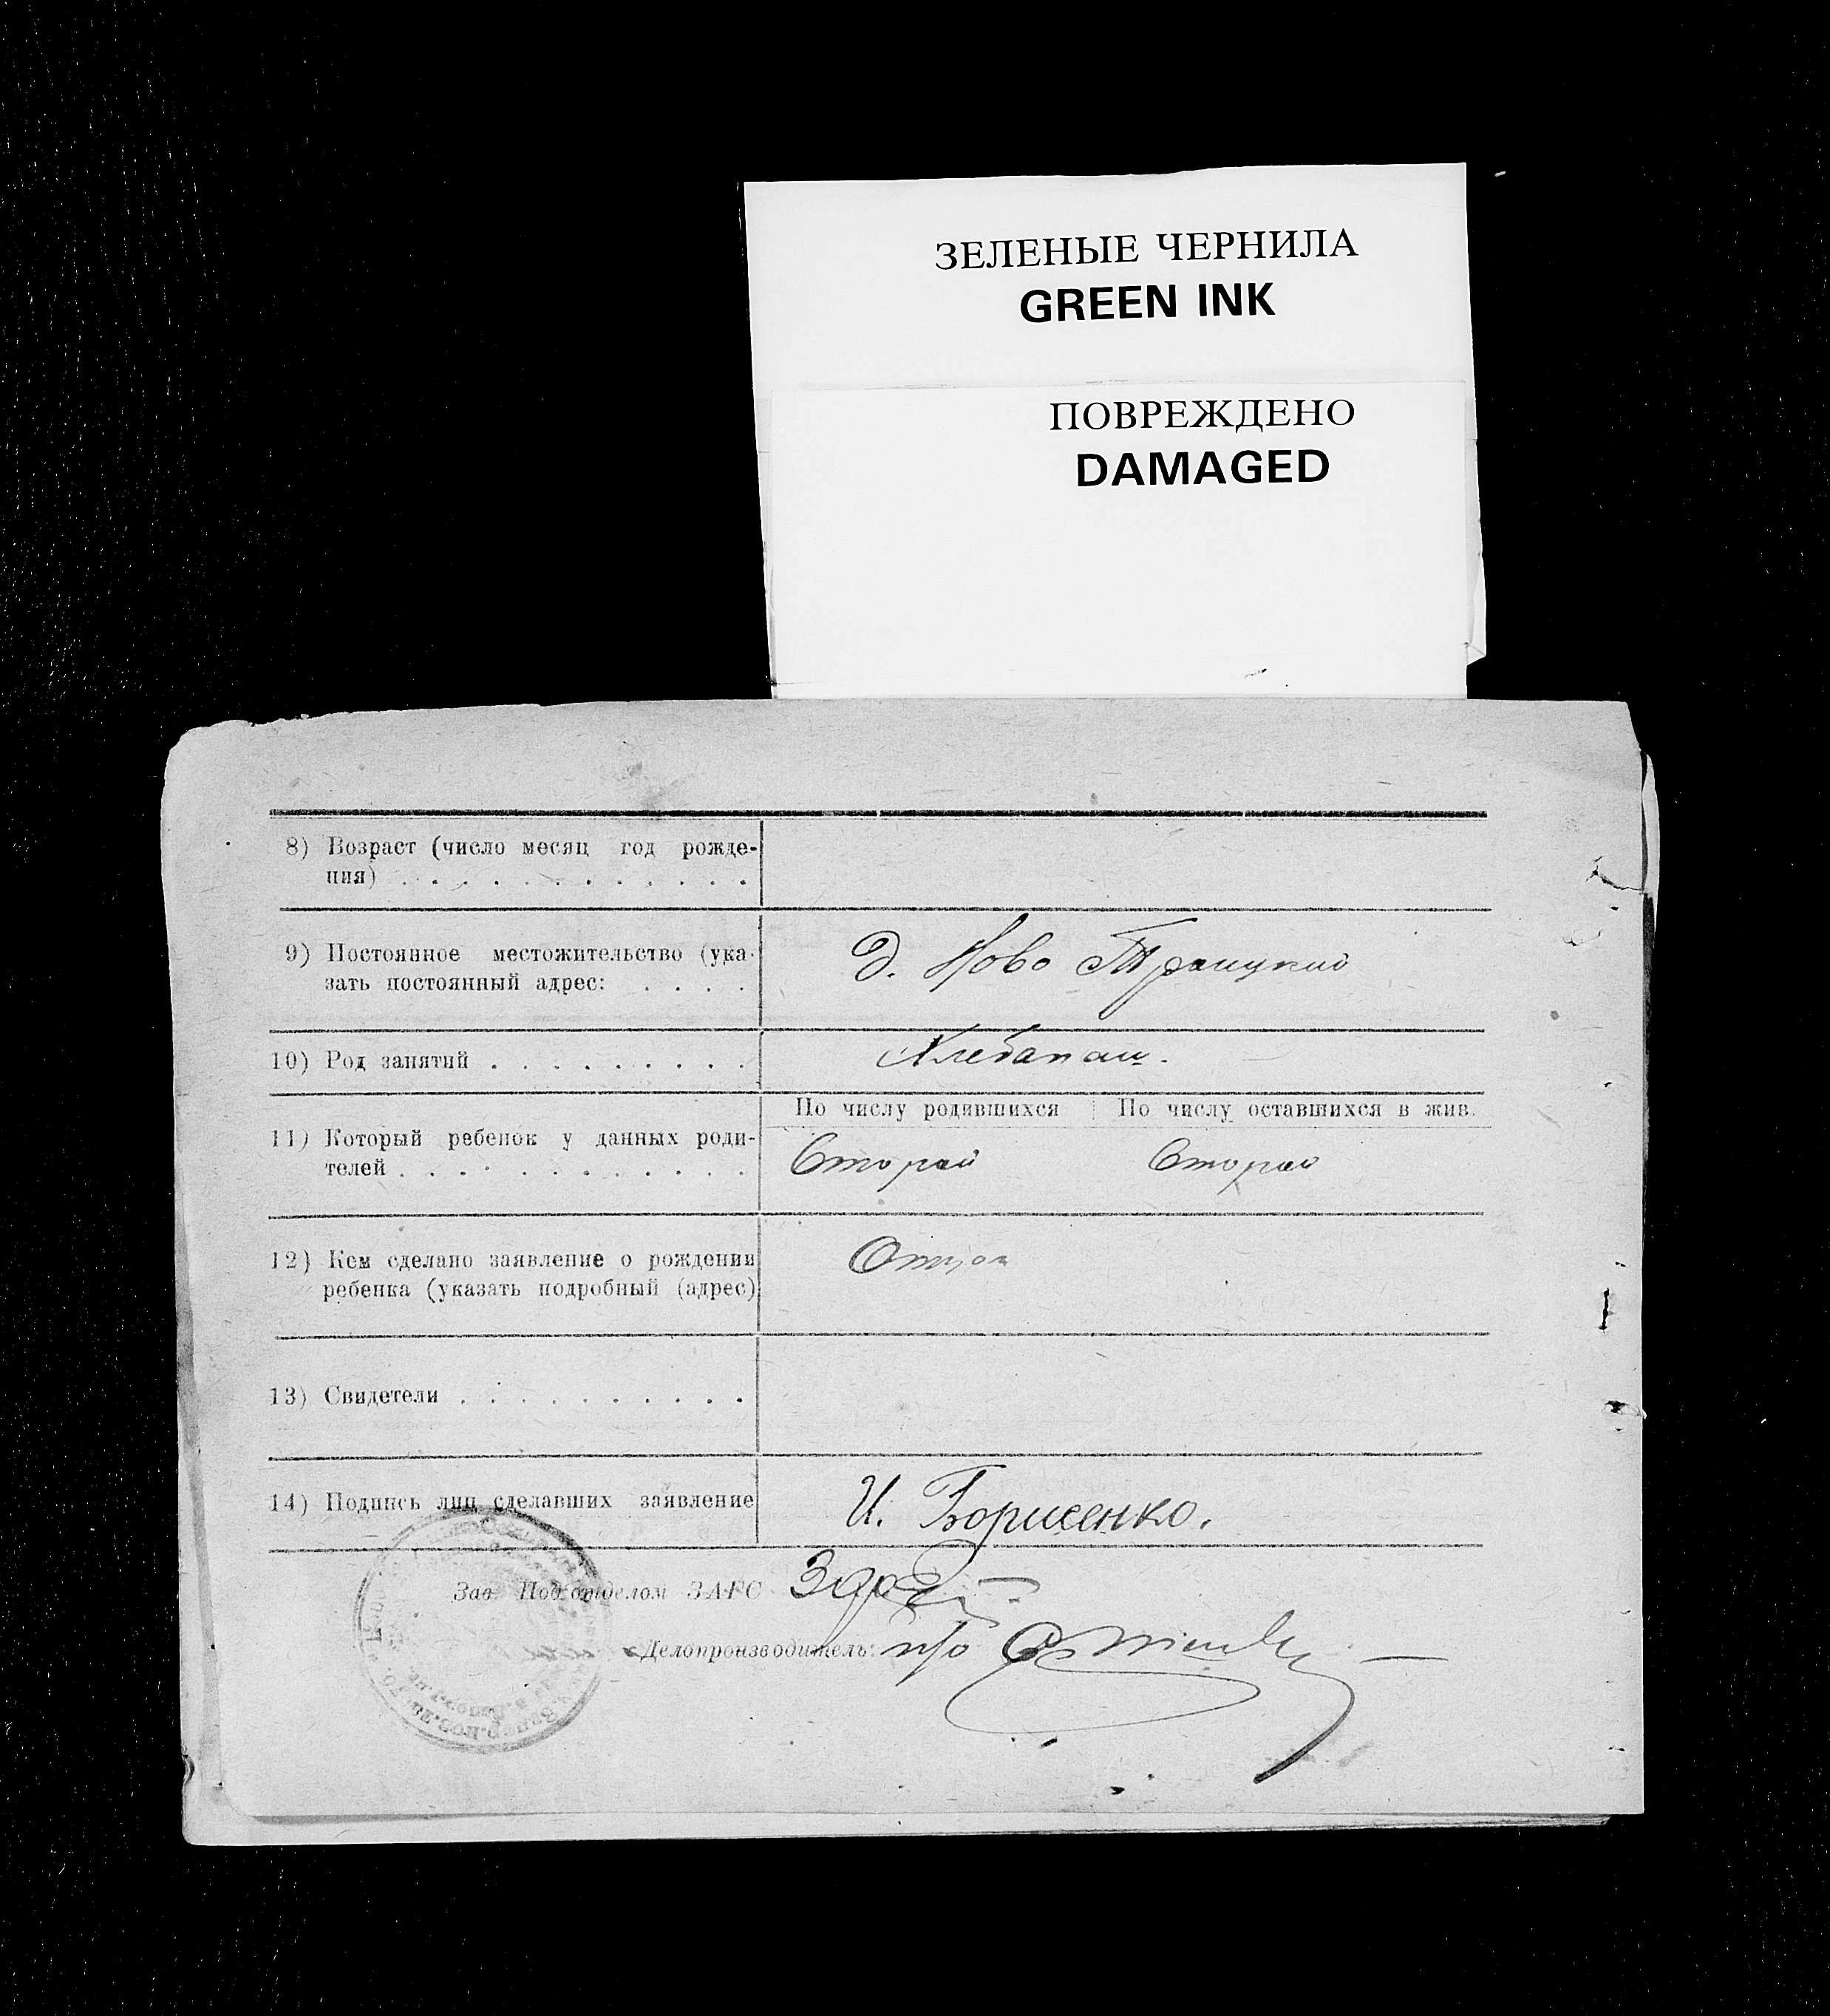 ЗЕЛЕНЫЕ ЧЕРНИЛА
GREEN INK
ПОВРЕЖДЕНО
DAMAGED
8) Возраст (число месяц год рожде-
ния) . . . . . . . . . . . .
9) Постоянное местожительство (ука-
зать постоянный адрес: . . . .
Д. Ново Траицкий
10) Род занятий . . . . . . . . .
Хлебапаш.
По числу родившихся По числу оставшихся в жив.
11) Который ребенок у данных роди-
телей . . . . . . . . . . . .
Второй Второй
12) Кем сделано заявление о рождении
ребенка (указать подробный (адрес)
Отцом
13) Свидетели . . . . . . . . . .
14) Подпись лиц сделавших заявление
И. Борисенко.
Зав. Подотделом ЗАГС
Делопроизводитель: